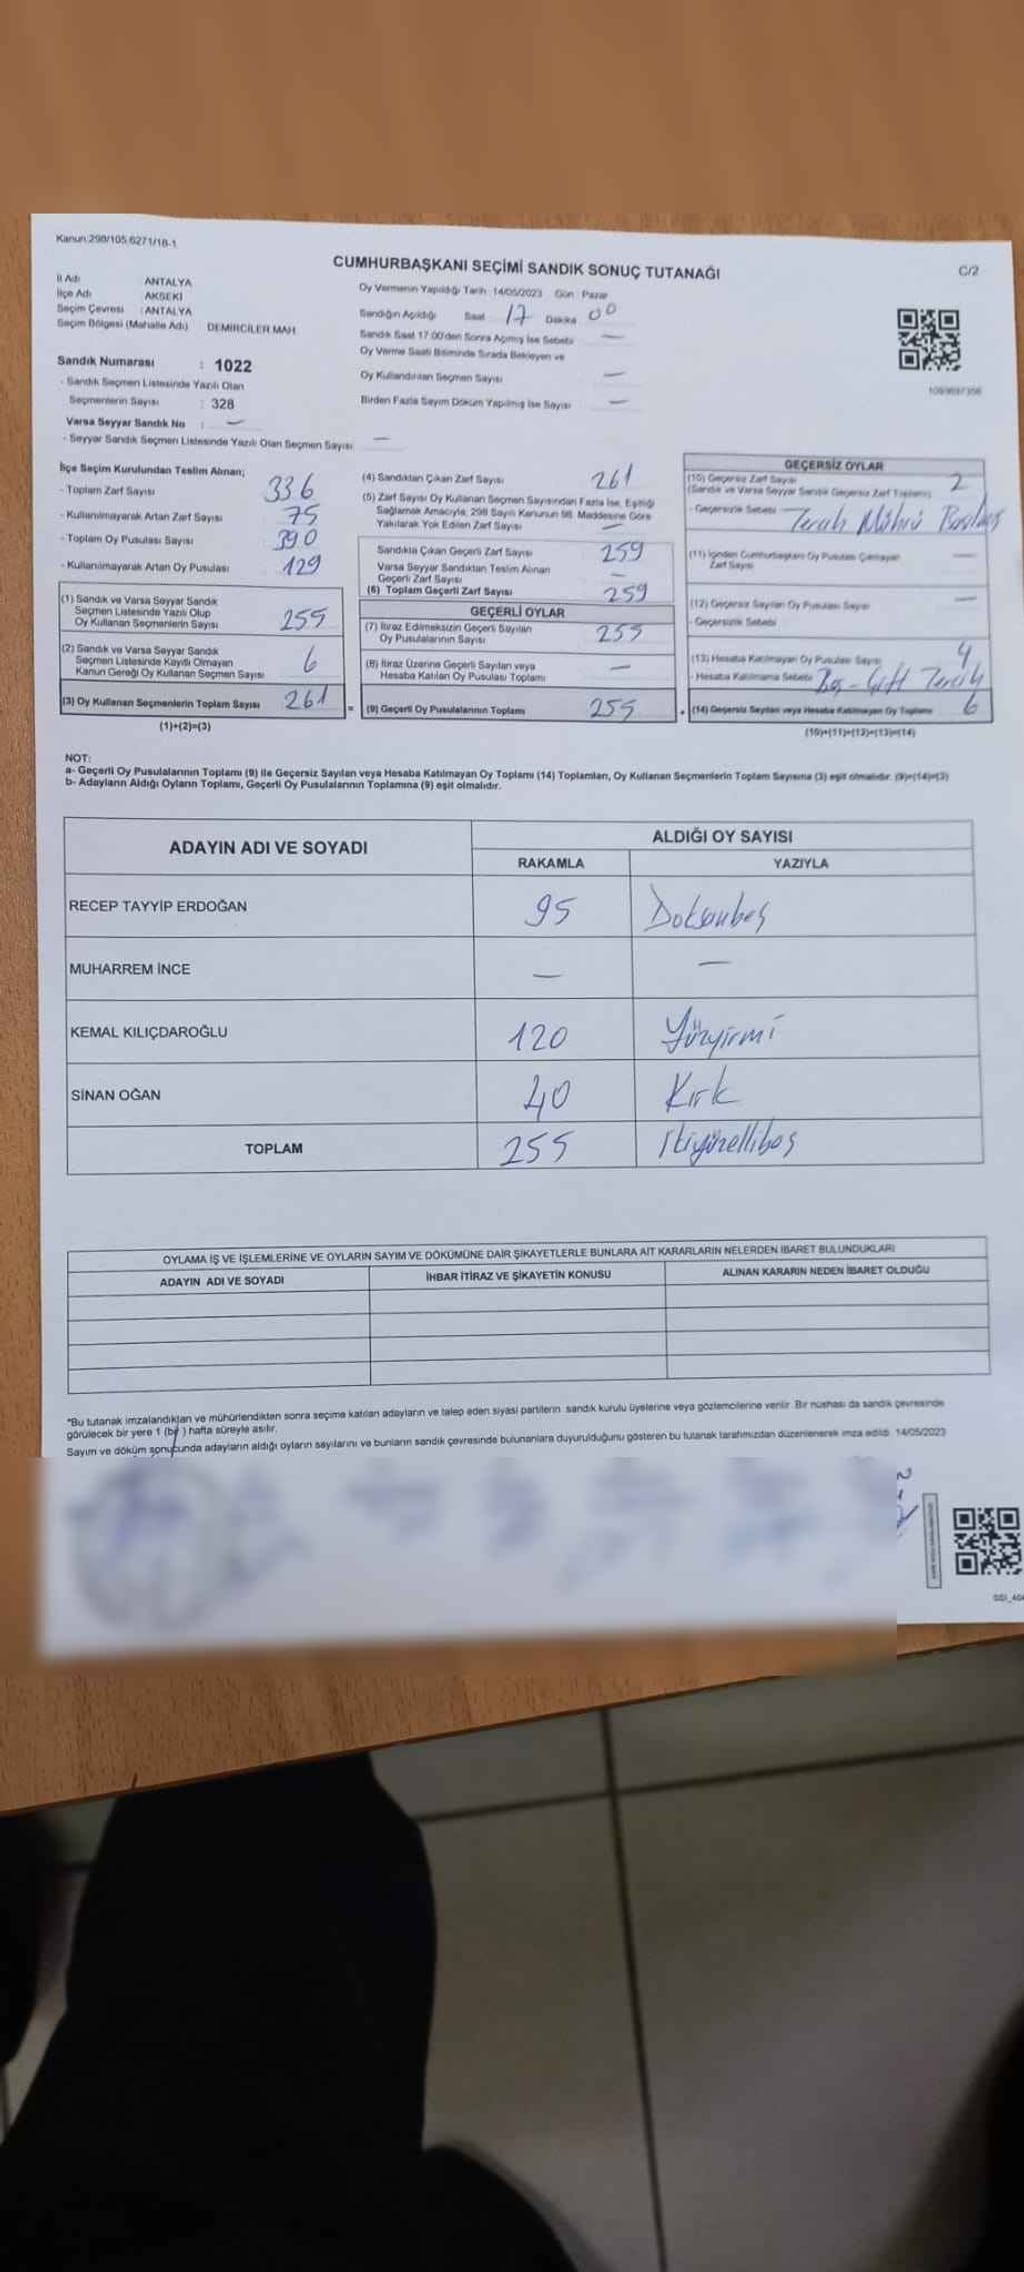 Kanun:298/105,6271/18-1
CUMHURBAŞKANI SEÇİMİ SANDIK SONUÇ TUTANAĞI
C/2
İl Adı : ANTALYA
İlçe Adı AKSEKİ
Seçim Çevresi : ANTALYA
Seçim Bölgesi (Mahalle Adı) DEMİRCİLER MAH
Oy Vermenin Yapıldığı Tarih 14/05/2023 Gün Pazar
Sandığın Açıldığı Saat 17 Dakika 00
Sandık Saat 17:00'den Sonra Açılmış İse Sebebi —
Oy Verme Saati Bitiminde Sırada Bekleyen ve
Oy Kullandırılan Seçmen Sayısı —
Birden Fazla Sayım Döküm Yapılmış İse Sayısı —
Sandık Numarası : 1022
- Sandık Seçmen Listesinde Yazılı Olan
Seçmenlerin Sayısı : 328
Varsa Seyyar Sandık No : —
- Seyyar Sandık Seçmen Listesinde Yazılı Olan Seçmen Sayısı —
İlçe Seçim Kurulundan Teslim Alınan;
- Toplam Zarf Sayısı 336
- Kullanılmayarak Artan Zarf Sayısı 75
- Toplam Oy Pusulası Sayısı 390
- Kullanılmayarak Artan Oy Pusulası 129
(1) Sandık ve Varsa Seyyar Sandık
Seçmen Listesinde Yazılı Olup
Oy Kullanan Seçmenlerin Sayısı 255
(2) Sandık ve Varsa Seyyar Sandık
Seçmen Listesinde Kayıtlı Olmayan
Kanun Gereği Oy Kullanan Seçmen Sayısı 6
(3) Oy Kullanan Seçmenlerin Toplam Sayısı 261 =
(1)+(2)=(3)
(4) Sandıktan Çıkan Zarf Sayısı 261
(5) Zarf Sayısı Oy Kullanan Seçmen Sayısından Fazla İse, Eşitliği
Sağlamak Amacıyla, 298 Sayılı Kanunun 98. Maddesine Göre
Yakılarak Yok Edilen Zarf Sayısı —
Sandıkta Çıkan Geçerli Zarf Sayısı 259
Varsa Seyyar Sandıktan Teslim Alınan
Geçerli Zarf Sayısı —
(6) Toplam Geçerli Zarf Sayısı 259
GEÇERLİ OYLAR
(7) İtiraz Edilmeksizin Geçerli Sayılan
Oy Pusulalarının Sayısı 255
(8) İtiraz Üzerine Geçerli Sayılan veya
Hesaba Katılan Oy Pusulası Toplamı —
(9) Geçerli Oy Pusulalarının Toplamı 255 +
GEÇERSİZ OYLAR
(10) Geçersiz Zarf Sayısı 2
(Sandık ve Varsa Seyyar Sandık Geçersiz Zarf Toplamı)
- Geçersizlik Sebebi Tercih Mührü
(11) İçinden Cumhurbaşkanı Oy Pusulası Çıkmayan
Zarf Sayısı —
(12) Geçersiz Sayılan Oy Pusulası Sayısı —
- Geçersizlik Sebebi
(13) Hesaba Katılmayan Oy Pusulası Sayısı 4
- Hesaba Katılmama Sebebi Boş - Çift Tercih
(14) Geçersiz Sayılan veya Hesaba Katılmayan Oy Toplamı 6
(10)+(11)+(12)+(13)=(14)
NOT:
a- Geçerli Oy Pusulalarının Toplamı (9) ile Geçersiz Sayılan veya Hesaba Katılmayan Oy Toplamı (14) Toplamları, Oy Kullanan Seçmenlerin Toplam Sayısına (3) eşit olmalıdır. (9)+(14)=(3)
b- Adayların Aldığı Oyların Toplamı, Geçerli Oy Pusulalarının Toplamına (9) eşit olmalıdır.
ADAYIN ADI VE SOYADI
ALDIĞI OY SAYISI
RAKAMLA YAZIYLA
RECEP TAYYİP ERDOĞAN 95 Doksanbeş
MUHARREM İNCE — —
KEMAL KILIÇDAROĞLU 120 Yüzyirmi
SİNAN OĞAN 40 Kırk
TOPLAM 255 İkiyüzellibeş
OYLAMA İŞ VE İŞLEMLERİNE VE OYLARIN SAYIM VE DÖKÜMÜNE DAİR ŞİKAYETLERLE BUNLARA AİT KARARLARIN NELERDEN İBARET BULUNDUKLARI
ADAYIN ADI VE SOYADI İHBAR İTİRAZ VE ŞİKAYETİN KONUSU ALINAN KARARIN NEDEN İBARET OLDUĞU
*Bu tutanak imzalandıktan ve mühürlendikten sonra seçime katılan adayların ve talep eden siyasi partilerin sandık kurulu üyelerine veya gözlemcilerine verilir. Bir nüshası da sandık çevresinde
görülecek bir yere 1 (bir) hafta süreyle asılır.
Sayım ve döküm sonucunda adayların aldığı oyların sayılarını ve bunların sandık çevresinde bulunanlara duyurulduğunu gösteren bu tutanak tarafımızdan düzenlenerek imza edildi. 14/05/2023